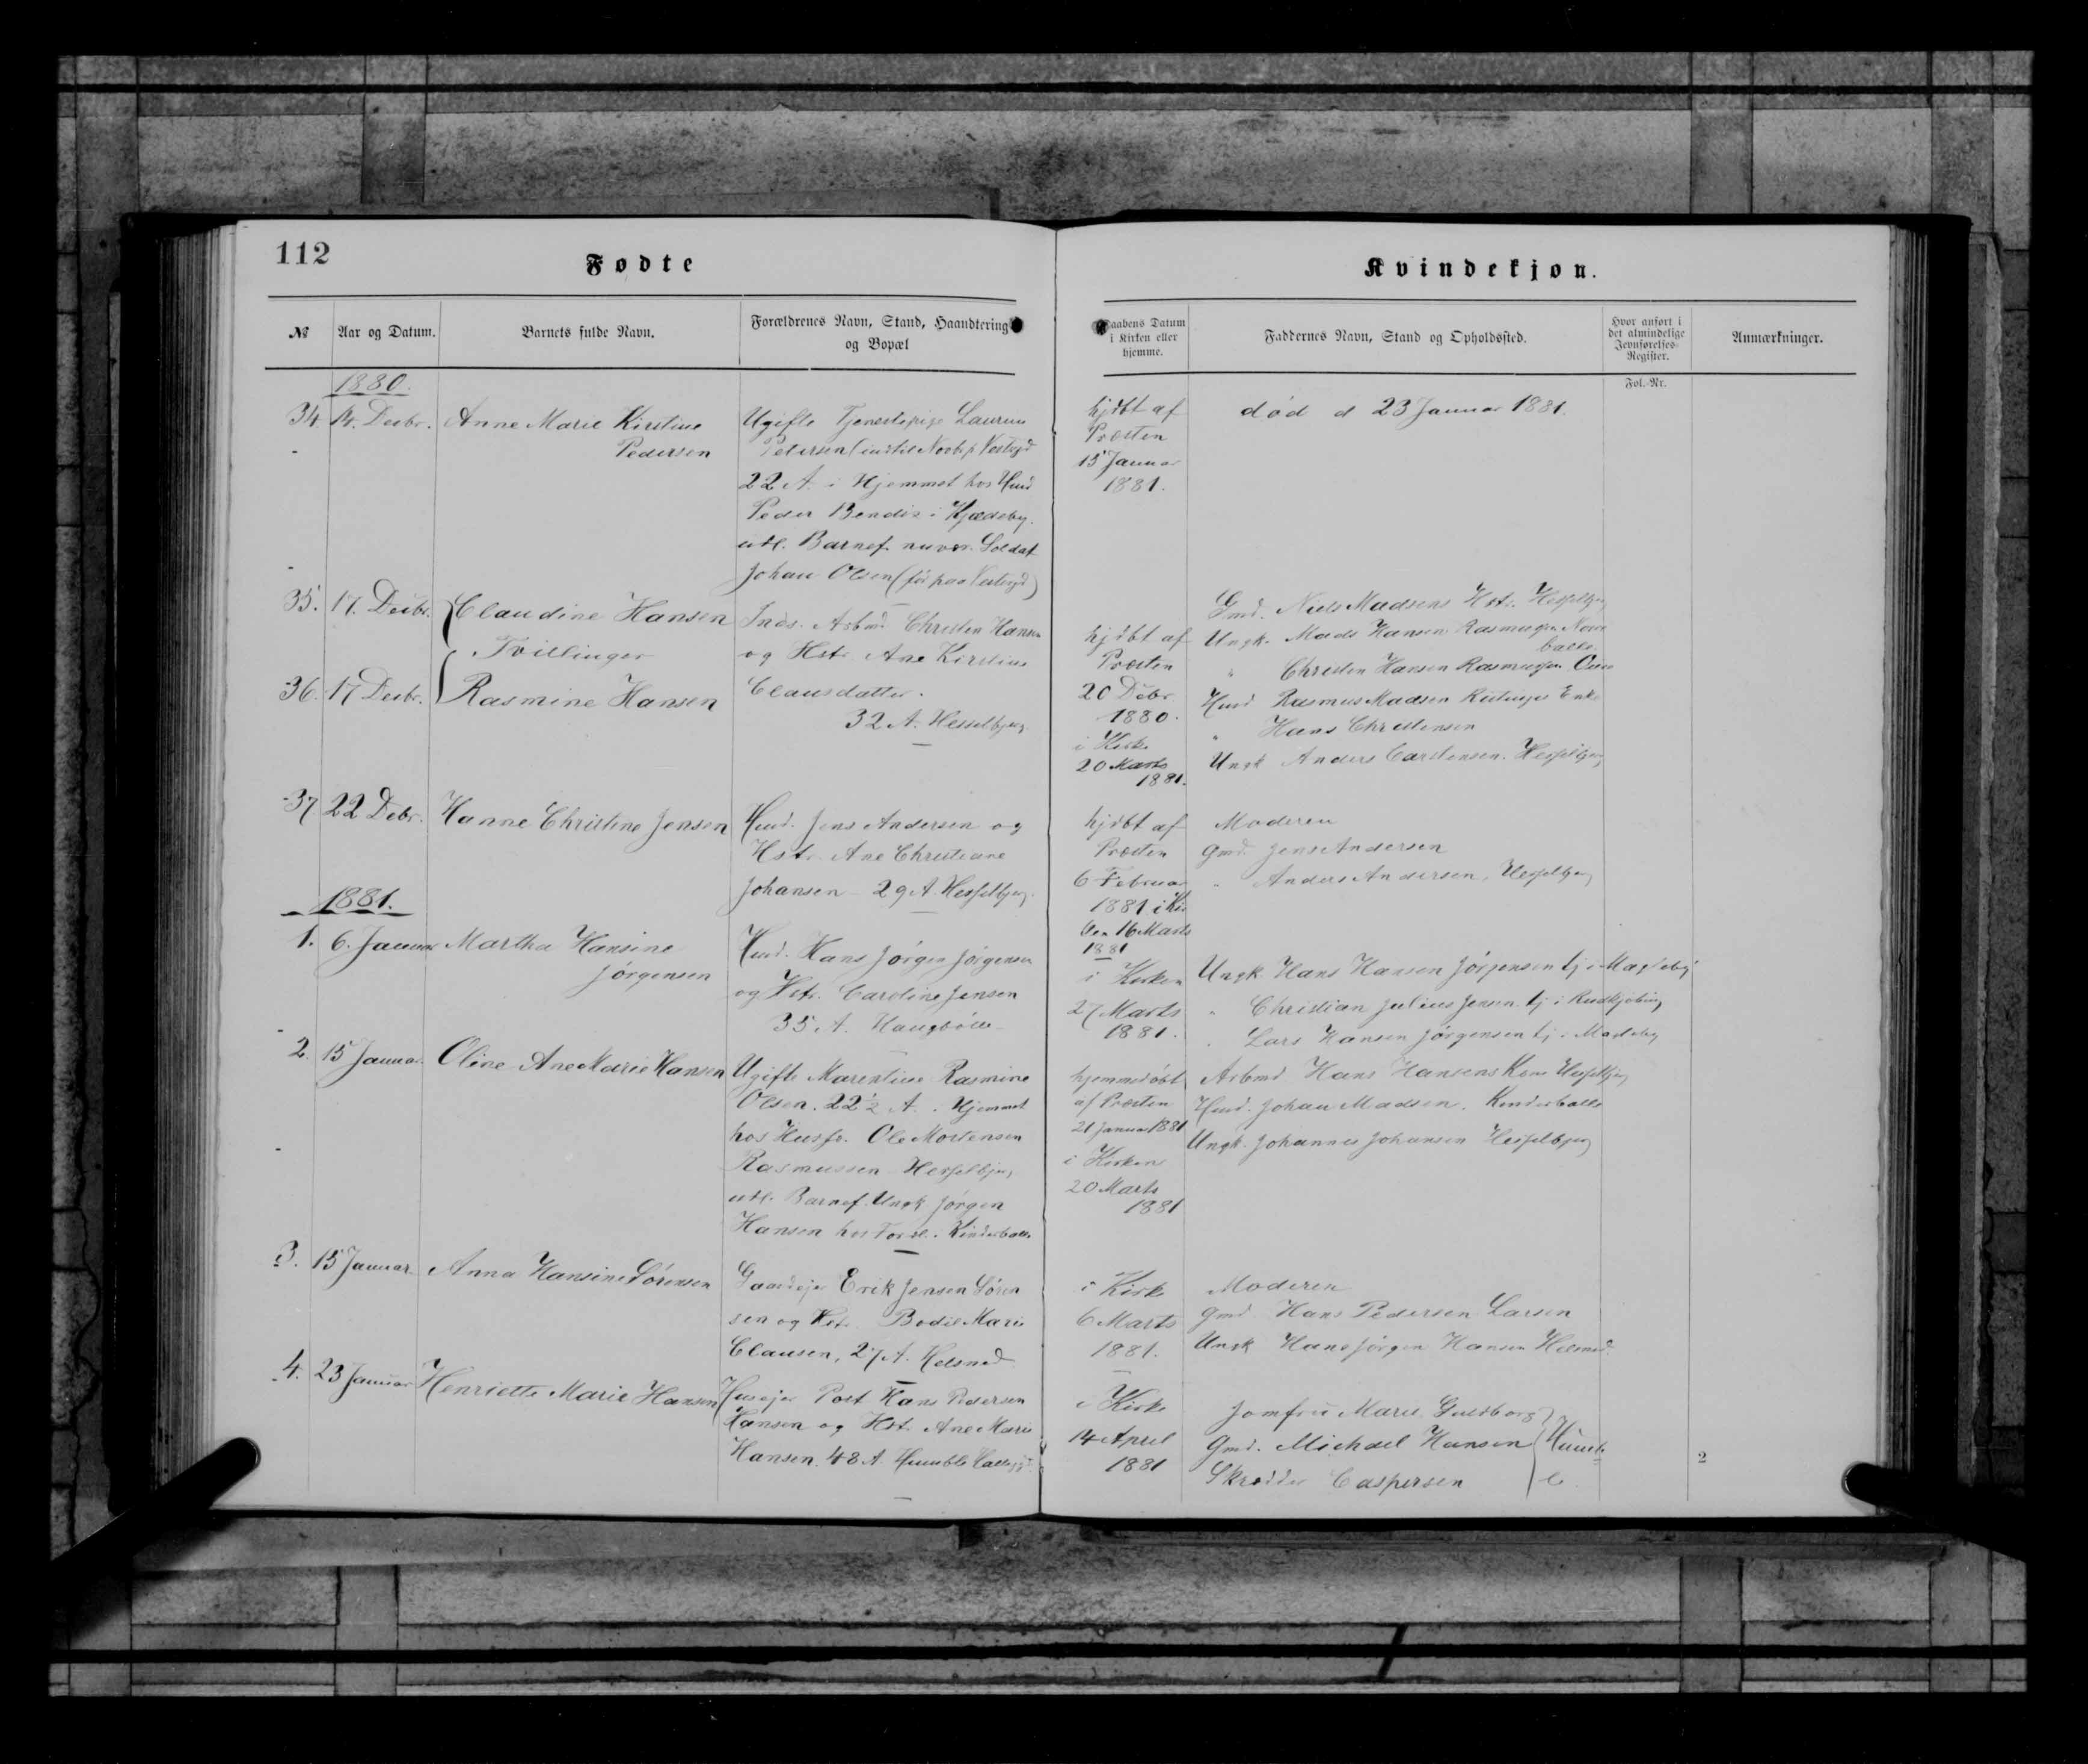 112
Fødte
Kvindekjøn.
№
Aar og Datum.
Barnets fulde Navn.
Forældrenes Navn, Stand, Haandtering
og Bopæl
aabens Datum
i Kirken eller
hjemme.
Faddernes Navn, Stand og Opholdssted.
Hvor anført i
det almindelige
Jevnførelses-
Register.
Anmærkninger.
Fol.-Nr.
1880.
34. 14. Decbr. Anne Marie Kirstine
Pedersen
Ugifte Tjenestepige Laurine
Petersen (indtil Novb.
22 A. i Hjemmet hos Husd
Peder Bendix i Kjædeby.
udl. Barnef. nuvær. Soldat
Johan Olsen (før paa
hjdbt af
Præsten
15 Januar
1881.
død d 23 Januar 1881.
35. 17. Decbr. Claudine Hansen
Tvillinger
36. 17 Decbr. Rasmine Hansen
Inds. Arbmd Christen Hansen
og Hstr. Ane Kirstine
Clausdatter.
32 A. Hesselbjerg
hjdbt af
Præsten
20 Decbr
1880.
i Kirke
20 Marts
1881.
Gmd. Niels Madsens Hstr. Hesselbjerg
Ungk. Mads Hansen Rasmussen
balle
" Christen Hansen Rasmussen
Husd Rasmus Madsen Enke
" Hans Christensen
Ungk Anders Carstensen. Hesselbjerg
37 22 Debr. Hanne Christine Jensen
Husd. Jens Andersen og
Hstr. Ane Christiane
Johansen 29 A. Hesselbjerg.
hjdbt af
Præsten
6 Februar
1881 i Kir
16 Marts
1881
Moderen
Gmd. Jens Andersen
" Anders Andersen, Hesselbjerg
1881.
1. 6. Januar Martha Hansine
Jørgensen
Husd. Hans Jørgen Jørgensen
og Hstr. Caroline Jensen
35 A. Haugbølle
i Kirken
27 Marts
1881.
Ungk. Hans Hansen Jørgensen tj i Magleby
" Christian Julius Jensen tj i Rudkjøbing
" Lars Hansen Jørgensen tj i Magleby
2. 15 Januar. Oline Ane Marie Hansen
Ugifte Marentine Rasmine
Olsen. 22½ A. i Hjemmet
hos Husfr. Ole Mortensen
Rasmussen Hesselbjerg
udl. Barnef. Ungk Jørgen
Hansen hos Foræl. i Kinderballe
hjemmedøbt
af Præsten
21 Januar 1881
i Kirken
20 Marts
1881
Arbmd Hans Hansens Kone Hesselbjerg
Husd. Johan Madsen. Kinderballe
Ungk. Johannes Johansen Hesselbjerg
3. 15 Januar Anna Hansine Sørensen
Gaardejer Erik Jensen Søren
sen og Hstr. Bodil Marie
Clausen, 27 A. Helsned
i Kirke
6 Marts
1881.
Moderen
Gmd Hans Pedersen Larsen
Ungk Hans Jørgen Hansen Helsned.
4. 23 Januar Henriette Marie Hansen
Husejer Post Hans Pedersen
Hansen og Hstr. Ane Marie
Hansen. 48 A. Humble
i Kirke
14 April
1881
Jomfru Marie Guldborg
Gmd. Michael Hansen
Skrædder Caspersen
Humb
le
2